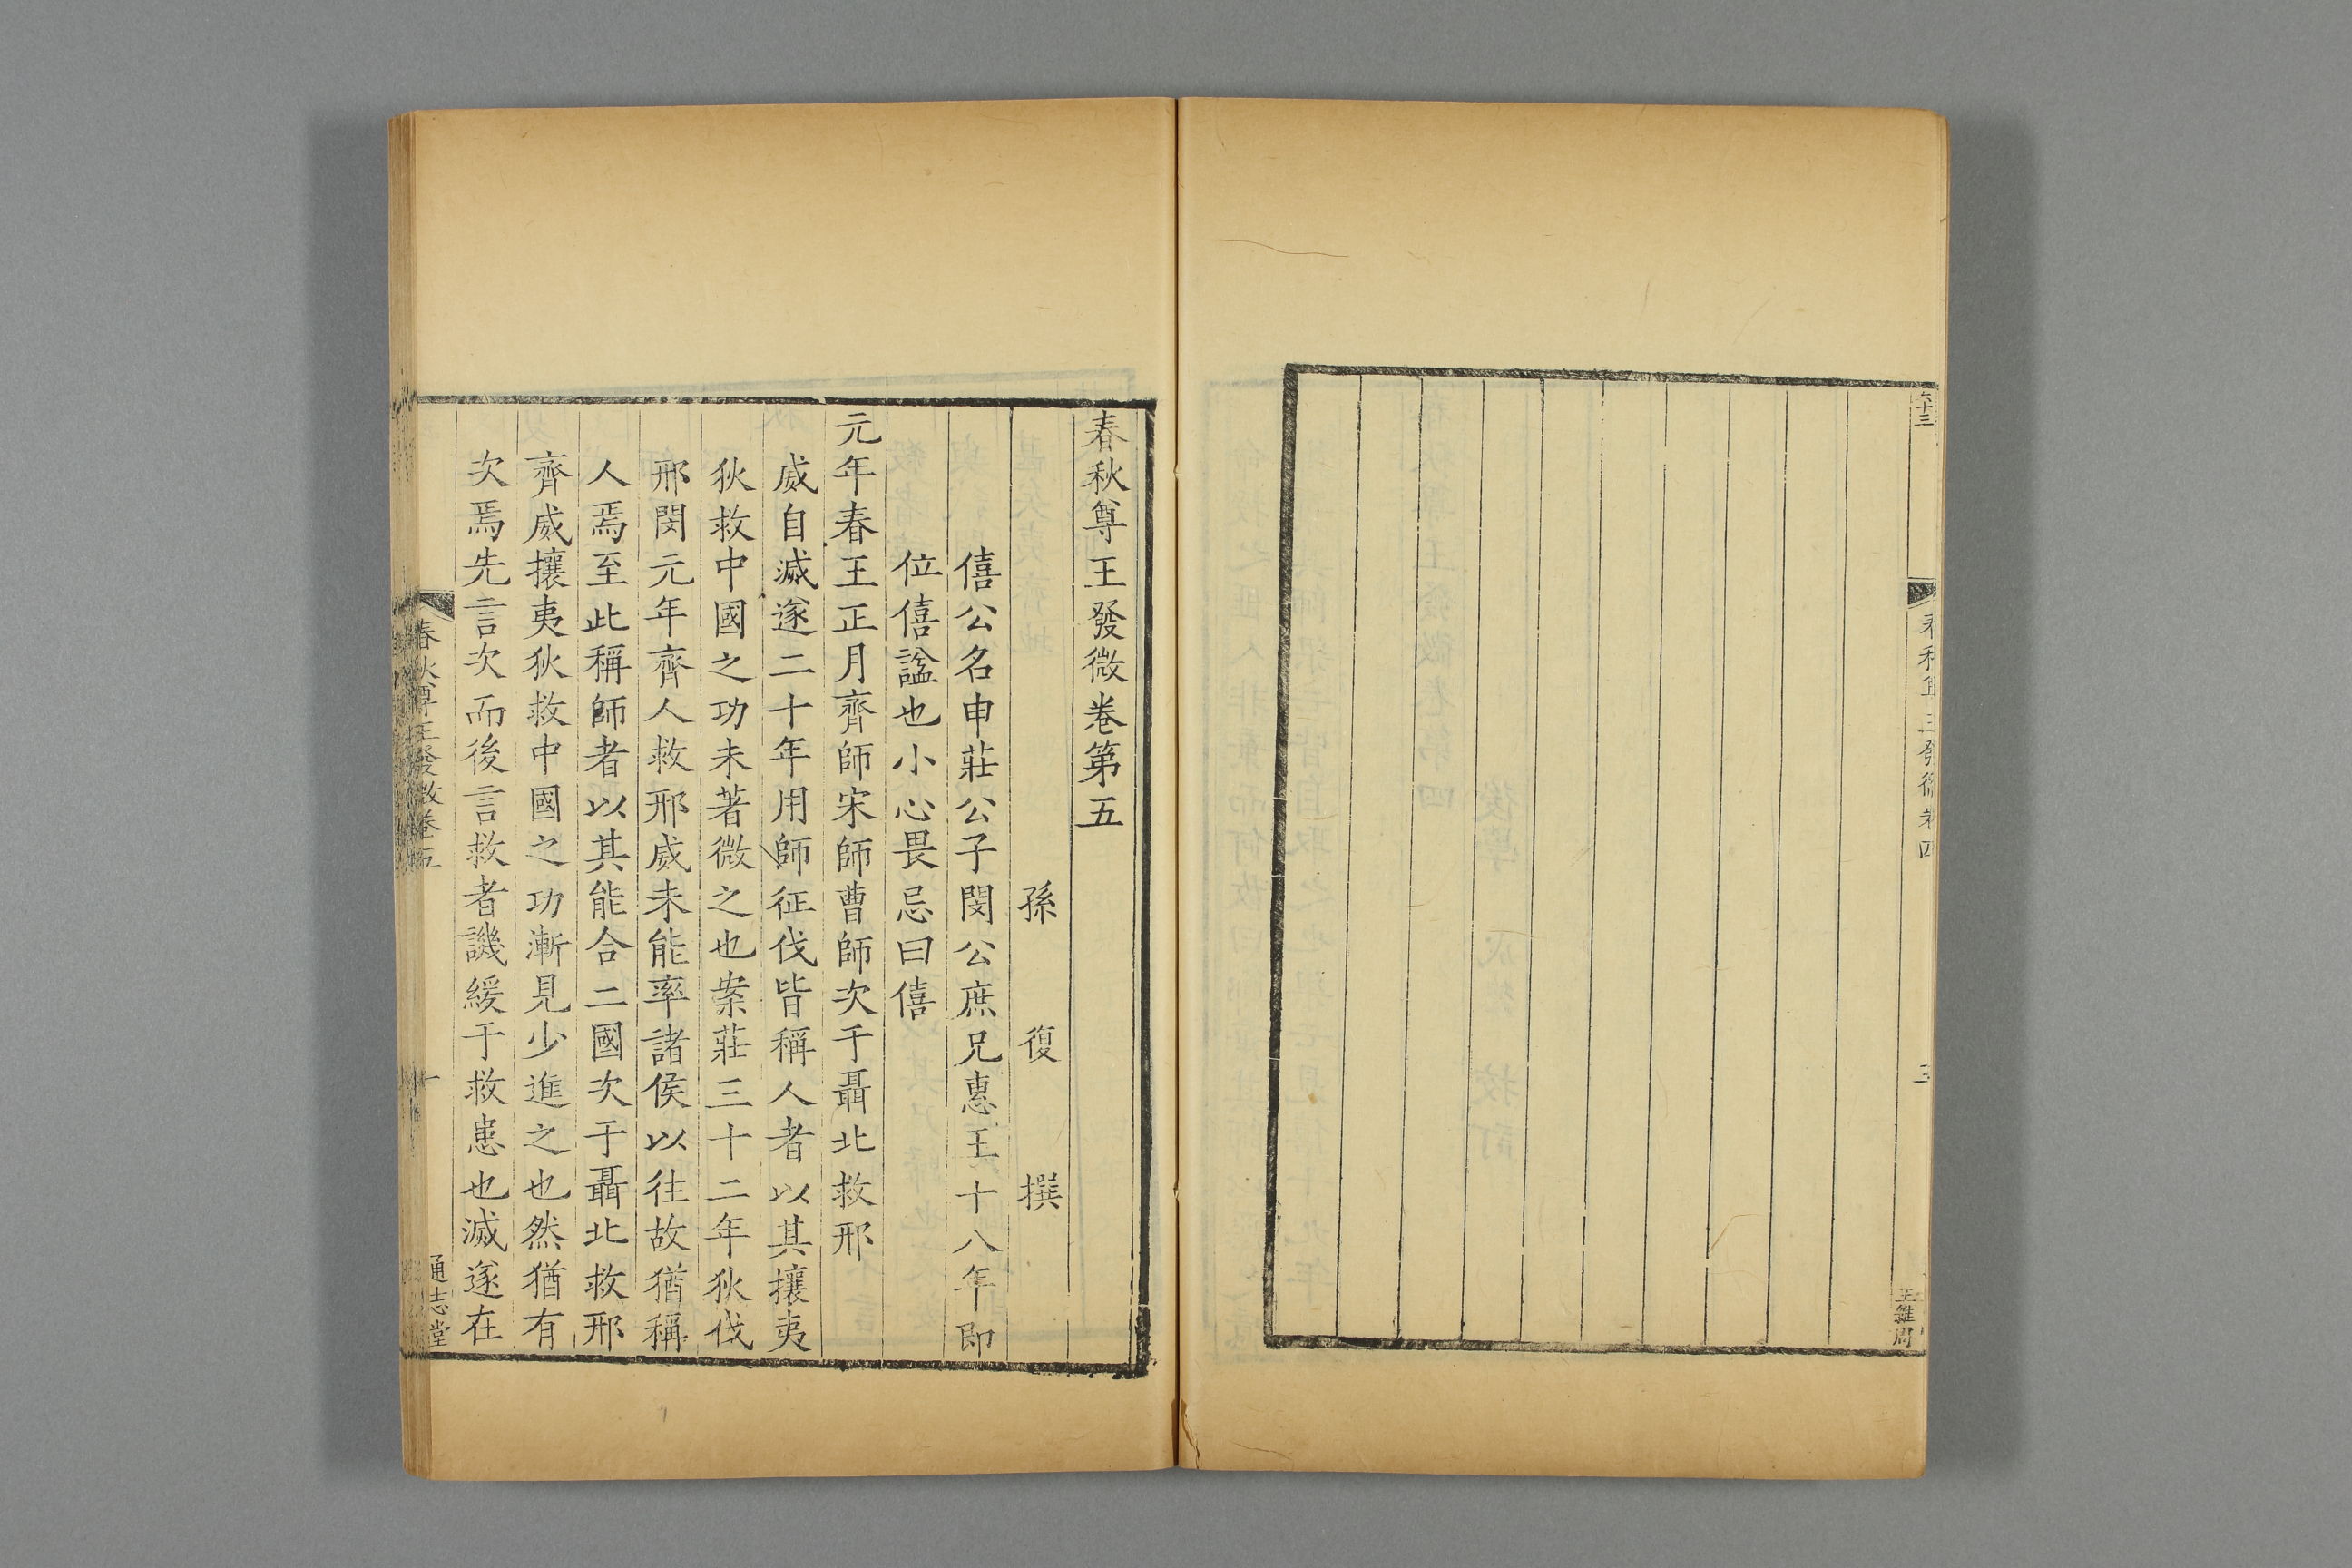 春秋尊王發微卷第五
孫復撰
僖公名申莊公子閔公庶兄惠王十八年即
位僖謚也小心畏忌曰僖
元年春王正月齊師宋師曹師次于聶北救邢
威自滅遂二十年用師征伐皆稱人者以其攘夷
狄救中國之功未著微之也案莊三十二年狄伐
邢閔元年齊人救邢威未能率諸侯以往故猶稱
人焉至此稱師者以其能合二國次于聶北救邢
齊威攘夷狄救中國之功漸見少進之也然猶有
次焉先言次而後言救者譏緩于救患也滅遂在
春秋尊王發微卷五
一
通志堂